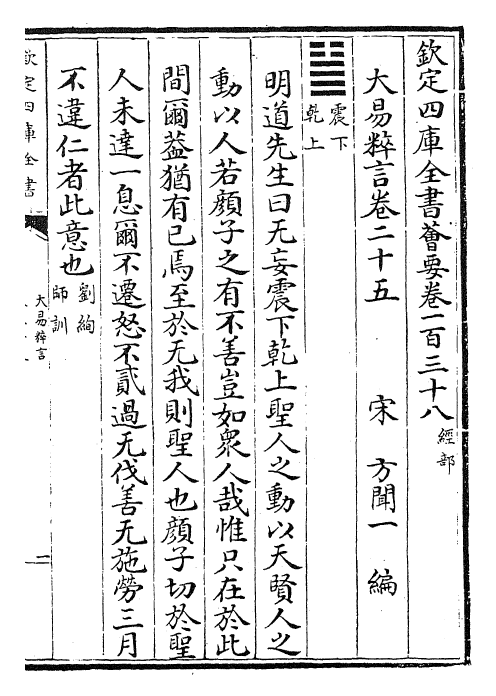 欽定四庫全書薈要卷一百三十八經部
大易粹言卷二十五　宋　方聞一　編
震下
乾上
明道先生曰无妄震下乾上聖人之動以天賢人之
動以人若顔子之有不善豈如衆人哉惟只在於此
間爾葢猶有已焉至於无我則聖人也顔子切於聖
人未達一息爾不遷怒不貳過无伐善无施勞三月
不違仁者此意也劉絢
師訓
欽定四庫全書
大易粹言
一